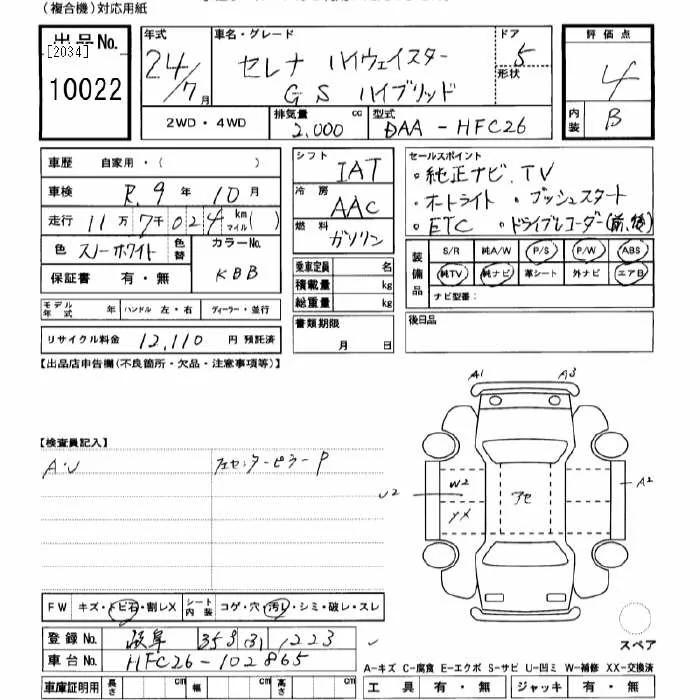 (複合機)対応用紙
出品No.
[2034]
10022
年式
24/7月
車名・グレード
セレナ ハイウェイスター
GS ハイブリッド
ドア
5
形状
2WD・4WD
排気量 cc
2,000
型式
DAA-HFC26
評価点
4
内装
B
車歴 自家用・( )
車検 R.9年 10月
走行 11万7千024 km マイル( )
色 スノーホワイト 色替
カラーNo.
KBB
保証書 有・無
モデル年式 年 ハンドル 左・右 ディーラー・並行
リサイクル料金 12,110 円 預託済
シフト
IAT
冷房
AAC
燃料
ガソリン
乗車定員 名
積載量 kg
総重量 kg
書類期限
月 日
セールスポイント
・純正ナビ.TV
・オートライト ・プッシュスタート
・ETC ・ドライブレコーダー(前,後)
装備品
S/R 純A/W P/S P/W ABS
純TV 純ナビ 革シート 外ナビ エアB
ナビ型番:
後日品
【出品店申告欄(不良箇所・欠品・注意事項等)】
【検査員記入】
A・U
フセンターピラーP
A1 A3
U2 W2 アセ A2
YX
FW キズ・トビ石・割レX シート内装 コゲ・穴・汚レ・シミ・破レ・スレ
登録No. 岐阜 358 (3) 1223
車台No. HFC26-102865
車庫証明用 長さ cm 幅 cm 高さ cm
スペア
A-キズ C-腐食 E-エクボ S-サビ U-凹ミ W-補修 XX-交換済
工具 有・無 ジャッキ 有・無